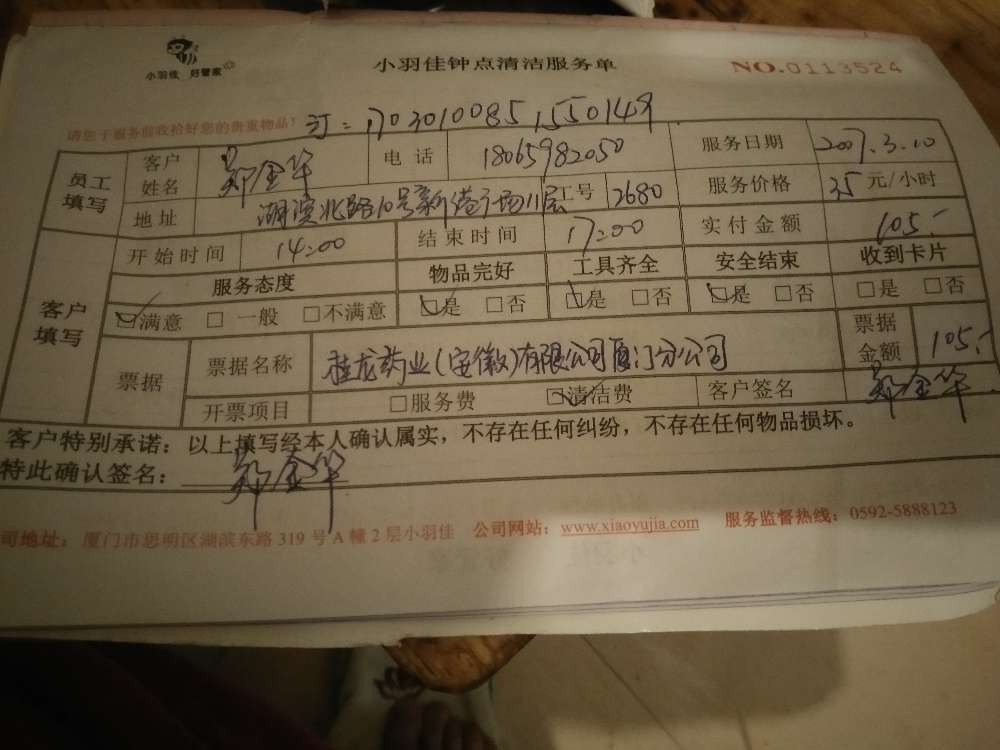 小羽佳 好管家
小羽佳钟点清洁服务单 NO.0113524
请您于服务前收拾好您的贵重物品! 订:170301008515550149
员工填写 客户姓名 郑金华 电话 18065982050 服务日期 2007.3.10
地址 湖滨北路10号新港广场11层 工号 2680 服务价格 35 元/小时
客户填写 开始时间 14:00 结束时间 17:00 实付金额 105.-
服务态度 物品完好 工具齐全 安全结束 收到卡片
☑满意 □一般 □不满意 ☑是 □否 ☑是 □否 ☑是 □否 □是 □否
票据 票据名称 桂龙药业(安徽)有限公司厦门分公司 票据金额 105.-
开票项目 □服务费 ☑清洁费 客户签名 郑金华
客户特别承诺:以上填写经本人确认属实,不存在任何纠纷,不存在任何物品损坏。
特此确认签名: 郑金华
司地址:厦门市思明区湖滨东路 319 号 A 幢 2 层小羽佳 公司网站:www.xiaoyujia.com 服务监督热线:0592-5888123